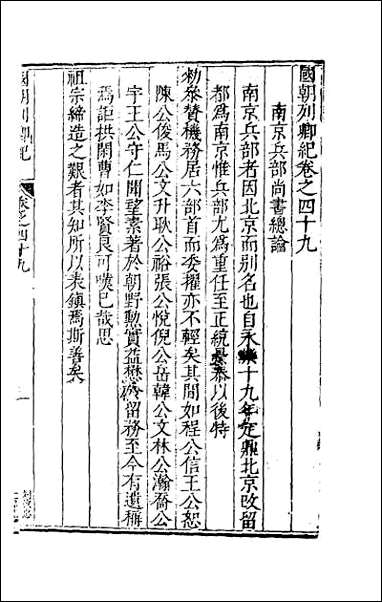 國朝列卿紀卷之四十九
南京兵部尚書總論
南京兵部者因北京而別名也自永樂十九年定鼎北京改留
都爲南京惟兵部尤爲重任至正統景泰以後特
勑叅贊機務居六部首而委擢亦不輕矣其間如程公信王公恕
陳公俊馬公文升耿公裕張公悅倪公岳韓公文林公瀚喬公
宇王公守仁聞望素著於朝野勲實益懋於留務至今有遺稱
焉詎拱閑曹如李賢良可嘆已哉思
祖宗締造之艱者其知所以表鎮焉斯善矣
國朝列卿紀 卷之四十九